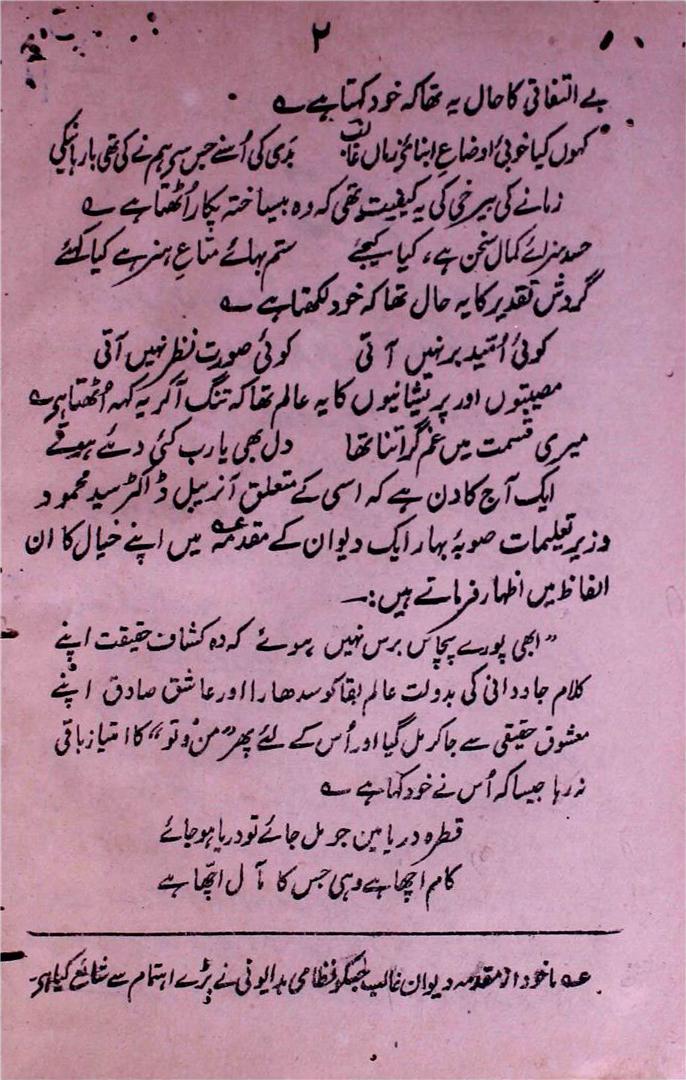 ۲
بے التفاتی کا حال یہ تھا کہ خود کہتا ہے ؎
کہوں کیا خوبیٔ اوضاعِ ابنائے زماں غالبؔ بدی کی اُسنے جس سے ہم نے کی تھی بارہا نیکی
زمانے کی بیرخی کی یہ کیفیت تھی کہ وہ بیساختہ پکار اُٹھتا ہے ؎
حسد سزائے کمال سخن ہے، کیا کیجئے ستم بہائے متاعِ ہنر ہے کیا کہئے
گردش تقدیر کا یہ حال تھا کہ خود لکھتا ہے ؎
کوئی اُمّید بر نہیں آتی کوئی صورت نظر نہیں آتی
مصیبتوں اور پریشانیوں کا یہ عالم تھا کہ تنگ آکر یہ کہہ اُٹھتا ہے ؎
میری قسمت میں غم گر اتنا تھا دل بھی یارب کئی دئے ہوتے
ایک آج کا دن ہے کہ اسی کے متعلق آنریبل ڈاکٹر سید محمود
وزیر تعلیمات صوبۂ بہار ایک دیوان کے مقدمہ عہ میں اپنے خیال کا ان
الفاظ میں اظہار فرماتے ہیں:۔
”ابھی پورے پچاس برس نہیں ہوئے کہ وہ کشاف حقیقت اپنے
کلام جاودانی کی بدولت عالم بقا کو سدھارا اور عاشق صادق اپنے
معشوق حقیقی سے جا کر مل گیا اور اُس کے لئے پھر ”من و تو“ کا امتیاز باقی
نہ رہا جیسا کہ اُس نے خود کہا ہے ؎
قطرہ دریا میں جو مل جائے تو دریا ہو جائے
کام اچھا ہے وہی جس کا مآل اچّھا ہے
عہ ماخوذ از مقدمہ دیوان غالب جسکو نظامی بدایونی نے بڑے اہتمام سے شائع کیا ہے۔